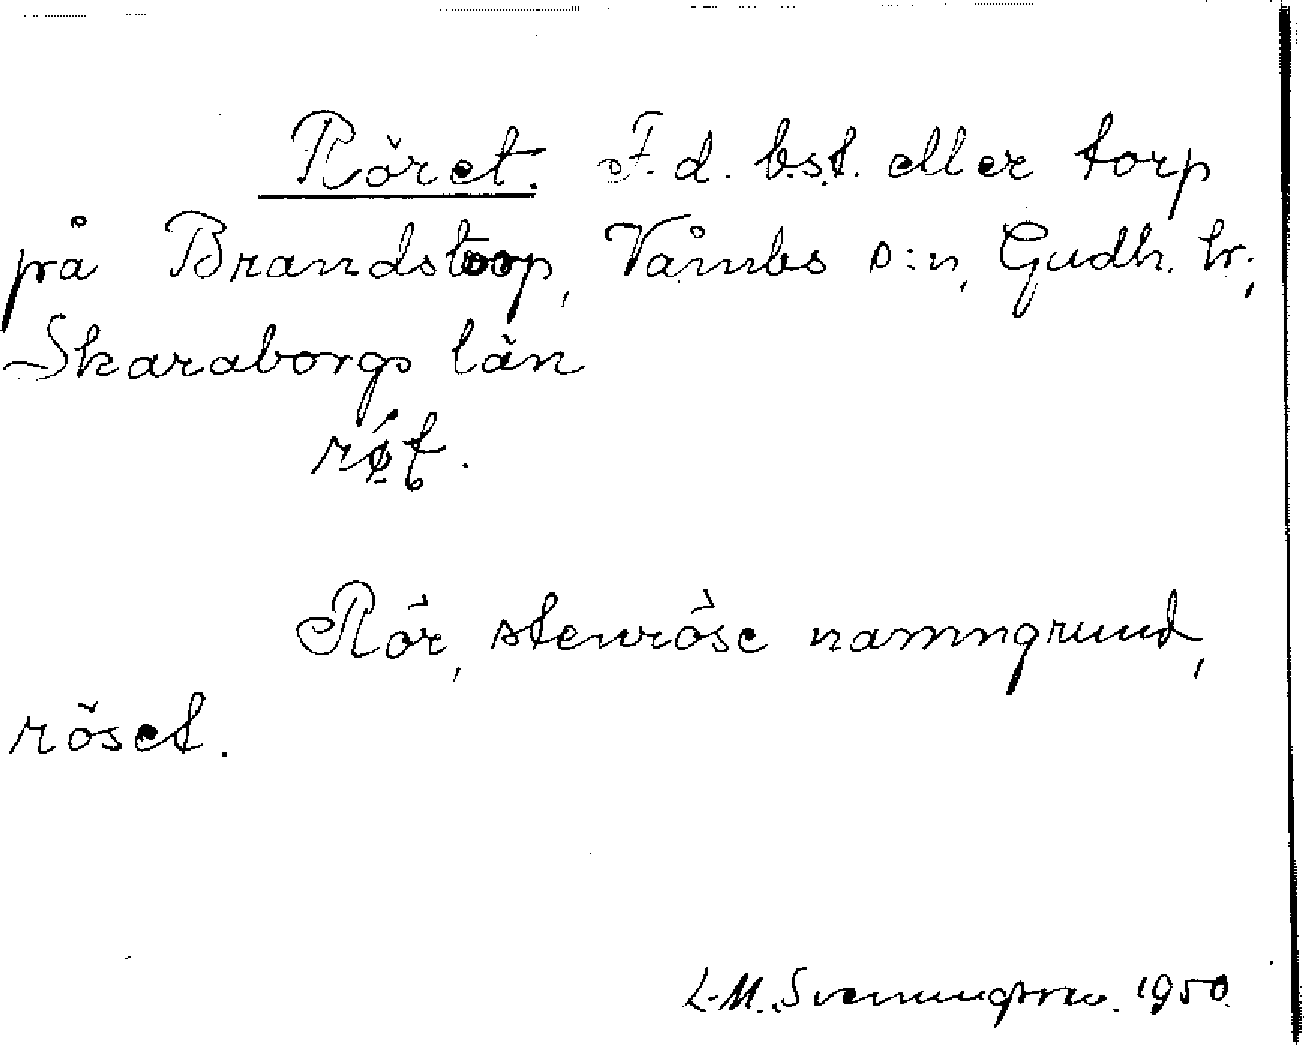 Röret. F.d. bst. eller torp
på Brandstorp, Våmbs s:n, Gudh. hr.,
Skaraborgs län
rǿ̣t.
Rör, stenröse namngrund,
röset.
L.M. Svenungsson. 1950.